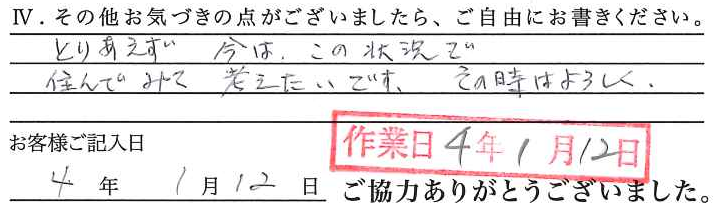 Ⅳ．その他お気づきの点がございましたら、ご自由にお書きください。
とりあえず 今は、この状況で
住んでみて 考えたいです、その時はよろしく．
お客様ご記入日
作業日 4年1月12日
4年1月12日 ご協力ありがとうございました。